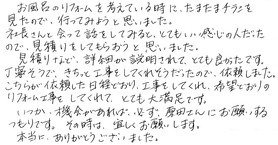 お風呂のリフォームを考えている時に、たまたまチラシを
見たので、行ってみようと思いました。
社長さんと会って話をしてみると、とてもいい感じの人だった
ので、見積りをしてもらおうと思いました。
見積りなど、詳細が説明されて、とても良かったです。
丁寧そうで、きちっと工事をしてくれそうだったので、依頼しました。
こちらが依頼した日程どおり、工事をしてくれ、希望どおりの
リフォーム工事をしてくれて、とても大満足です。
いつか、機会があれば、必ず、原田さんにお願いする
つもりです。その時は、宜しくお願いします。
本当に、ありがとうございました。